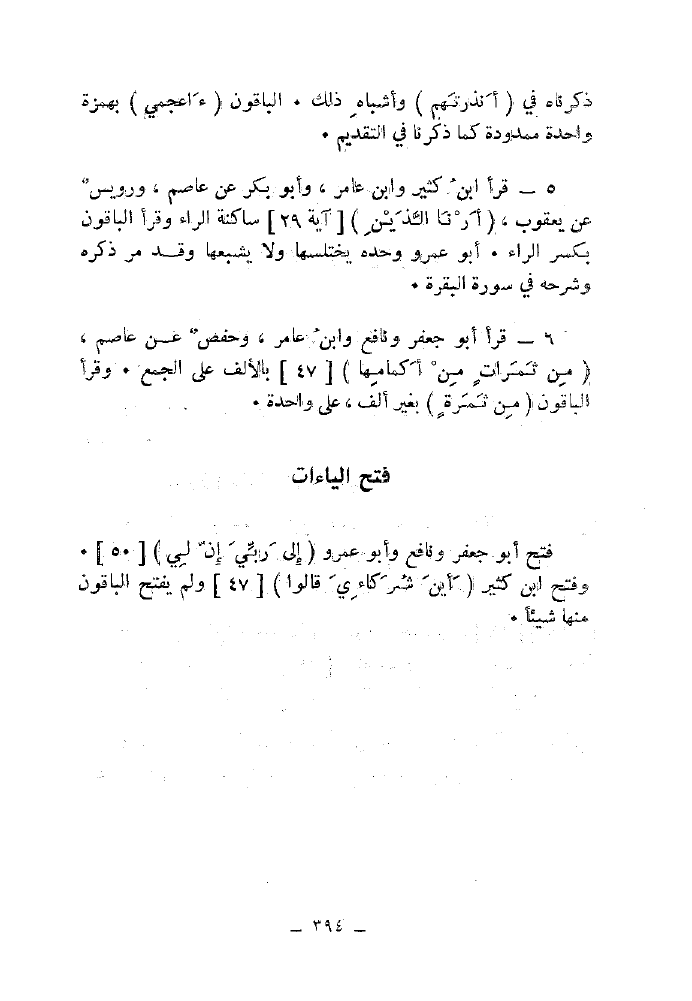 ذكرناه في ( أَنذرتَهم ) وأشباهِ ذلك ٠ الباقون ( ءَاعجمي ) بهمزة
واحدة ممدودة كما ذكرنا في التقديم ٠
٥ ــ قرأ ابنُ كثير وابن عامر ، وأبو بكر عن عاصم ، ورويسٌ
عن يعقوب ، ( أَرْنَا الَّذَيْنِ ) [ آية ٢٩ ] ساكنة الراء وقرأ الباقون
بكسر الراء ٠ أبو عمرو وحده يختلسها ولا يشبعها وقــد مر ذكره
وشرحه في سورة البقرة ٠
٦ ــ قرأ أبو جعفر ونافع وابنُ عامر ، وحفصٌ عــن عاصم ،
( مِن ثَمَرَاتٍ مِنْ أَكمامِها ) [ ٤٧ ] بالألف على الجمع ٠ وقرأ
الباقون ( مِن ثَمَرَةٍ ) بغير ألف ، على واحدة ٠
فتح الياءات
فتح أبو جعفر ونافع وأبو عمرو ( إلى رَبِّيَ إنّ لِي ) [ ٥٠ ] ٠
وفتح ابن كثير ( أَينَ شُرَكاءِيَ قالوا ) [ ٤٧ ] ولم يفتح الباقون
منها شيئاً ٠
ــ ٣٩٤ ــ